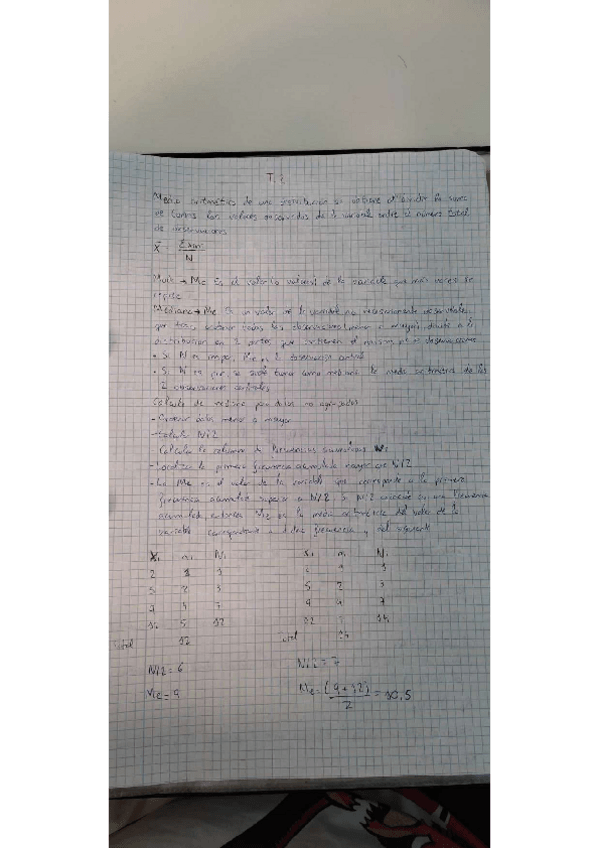 T. 2
Media aritmética de una distribución se obtiene al dividir la suma
de todos los valores observados de la variable entre el número total
de observaciones
x̄ = Σxini
N
Moda → Mo Es el valor (o valores) de la variable que más veces se
repite
Mediana → Me Es un valor de la variable no necesariamente observable,
que tras ordenar todas las observaciones menor a mayor, divide a la
distribución en 2 partes que contienen el mismo nº de observaciones
• Si N es impar, Me es la observación central
• Si N es par, se suele tomar como mediana la media aritmética de las
2 observaciones centrales
Calculo de mediana para datos no agrupados
- Ordenar datos menor a mayor
- Calcular N/2
- Calcula la columna de frecuencias acumuladas Ni
- Localiza la primera frecuencia acumulada mayor que N/2
- La Me es el valor de la variable que corresponde a la primera
frecuencia acumulada superior a N/2. Si N/2 coincide con una frecuencia
acumulada, entonces Me es la media aritmética del valor de la
variable correspondiente a dicha frecuencia y del siguiente
Xi ni Ni
2 1 1
5 2 3
9 4 7
14 5 12
Total 12
N/2 = 6
Me = 9
xi ni Ni
5 2 3
9 4 7
12 14
Total 14
N/2 = 7
Me = (9+12) = 10,5
2